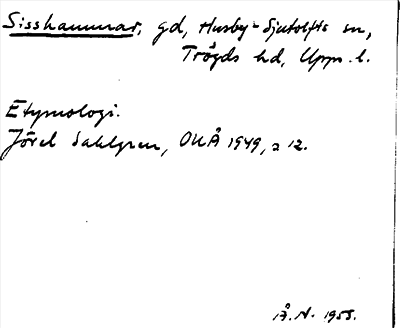 Sisshammar, gd, Husby-Sjutolfts sn,
Trögds hd, Upps. l.
Etymologi.
Jöran Sahlgren, ONÅ 1949, s 12.
1955.